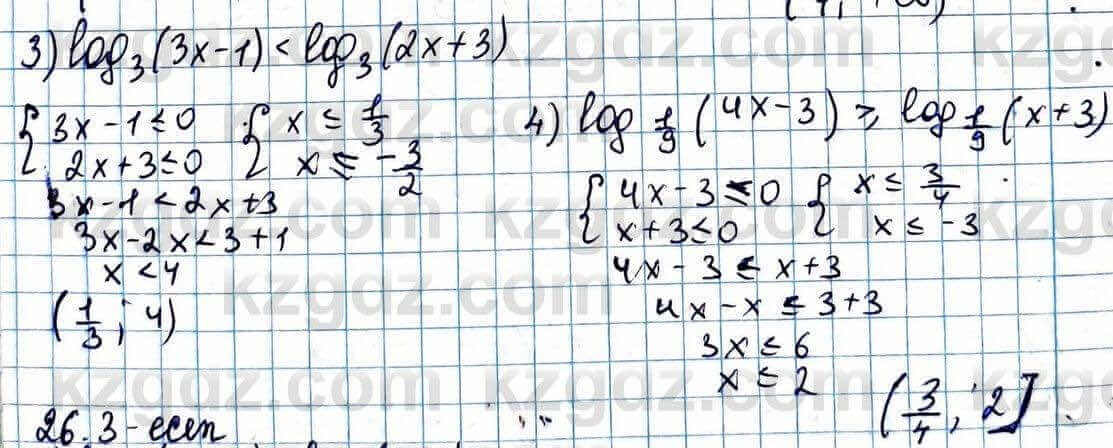 3) log₃(3x-1) < log₃(2x+3)
{ 3x-1≤0 { x ≤ 1/3
2x+3≤0 x ≤ -3/2
3x-1<2x+3
3x-2x<3+1
x<4
(1/3; 4)
4) log 1/9 (4x-3) ≥ log 1/9 (x+3)
{ 4x-3≤0 { x ≤ 3/4
x+3≤0 x ≤ -3
4x-3 ≤ x+3
4x-x ≤ 3+3
3x ≤ 6
x ≤ 2
(3/4; 2]
26.3-есеп
kzgdz.com